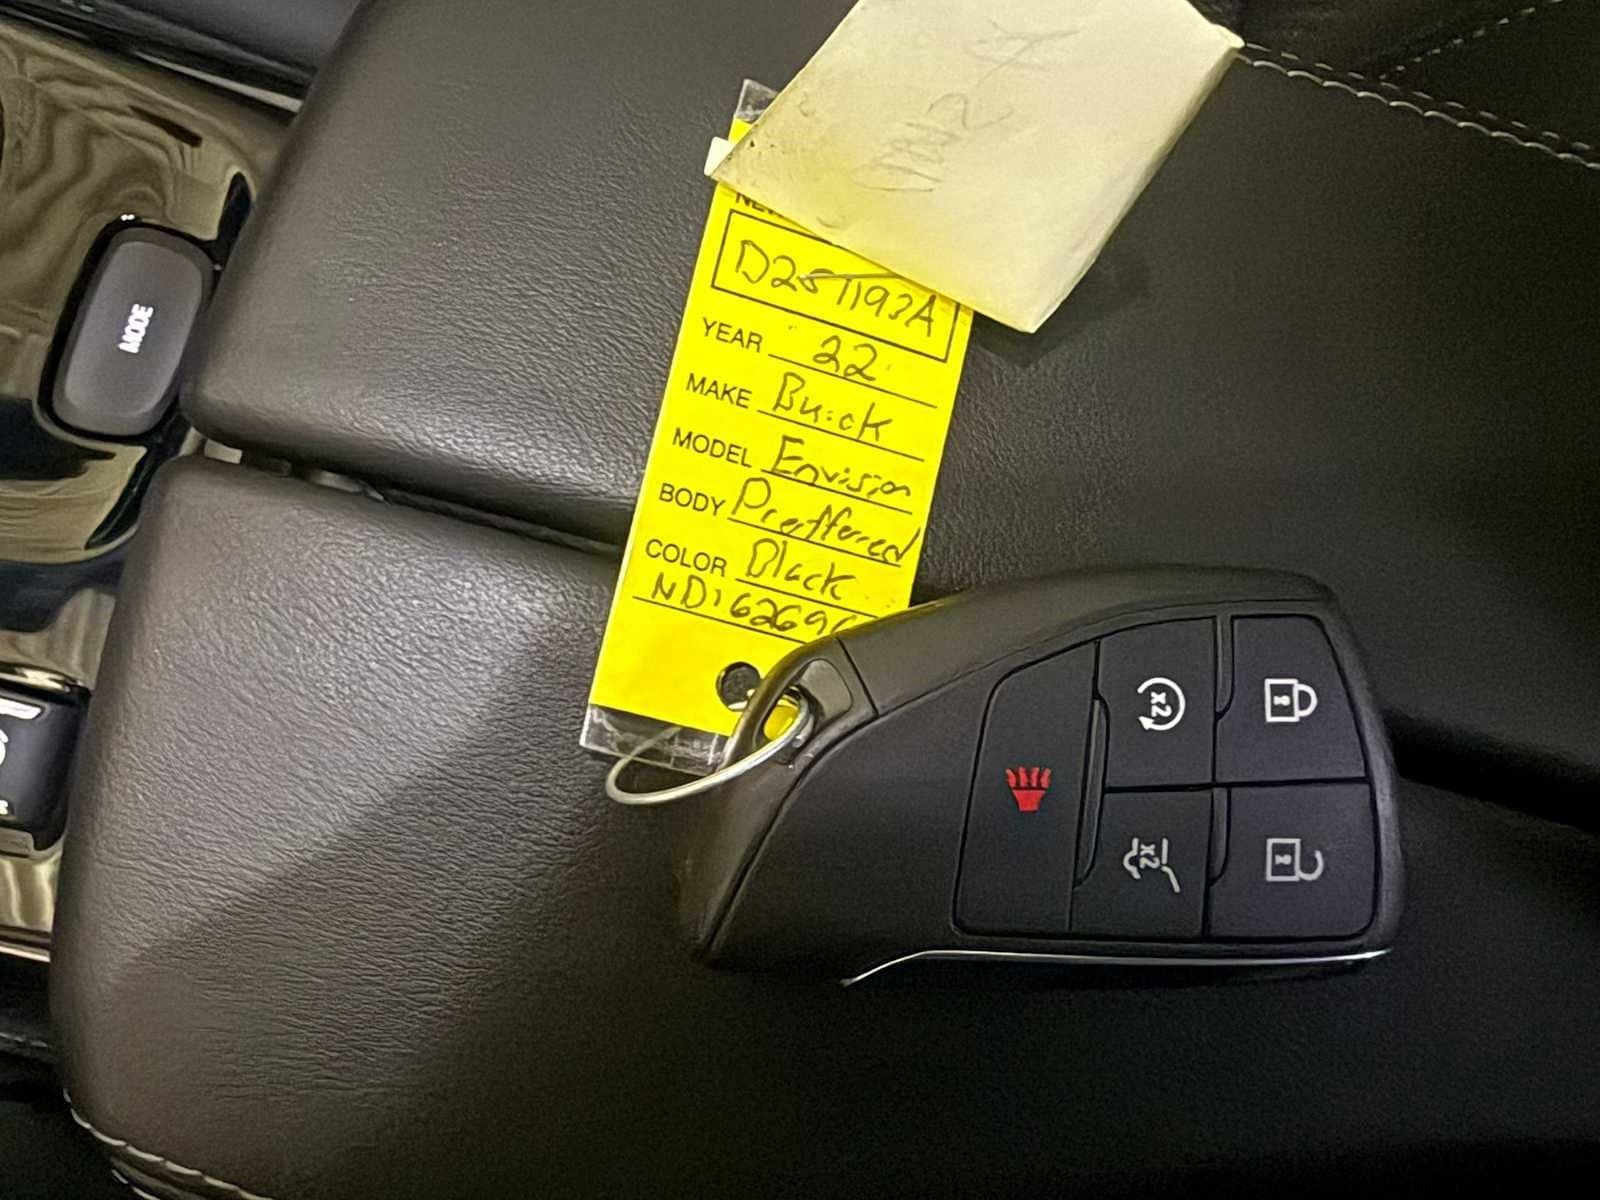 D251193A
YEAR 22
MAKE Buick
MODEL Envision
BODY Preffered
COLOR Black
ND16269
MODE
x2
x2